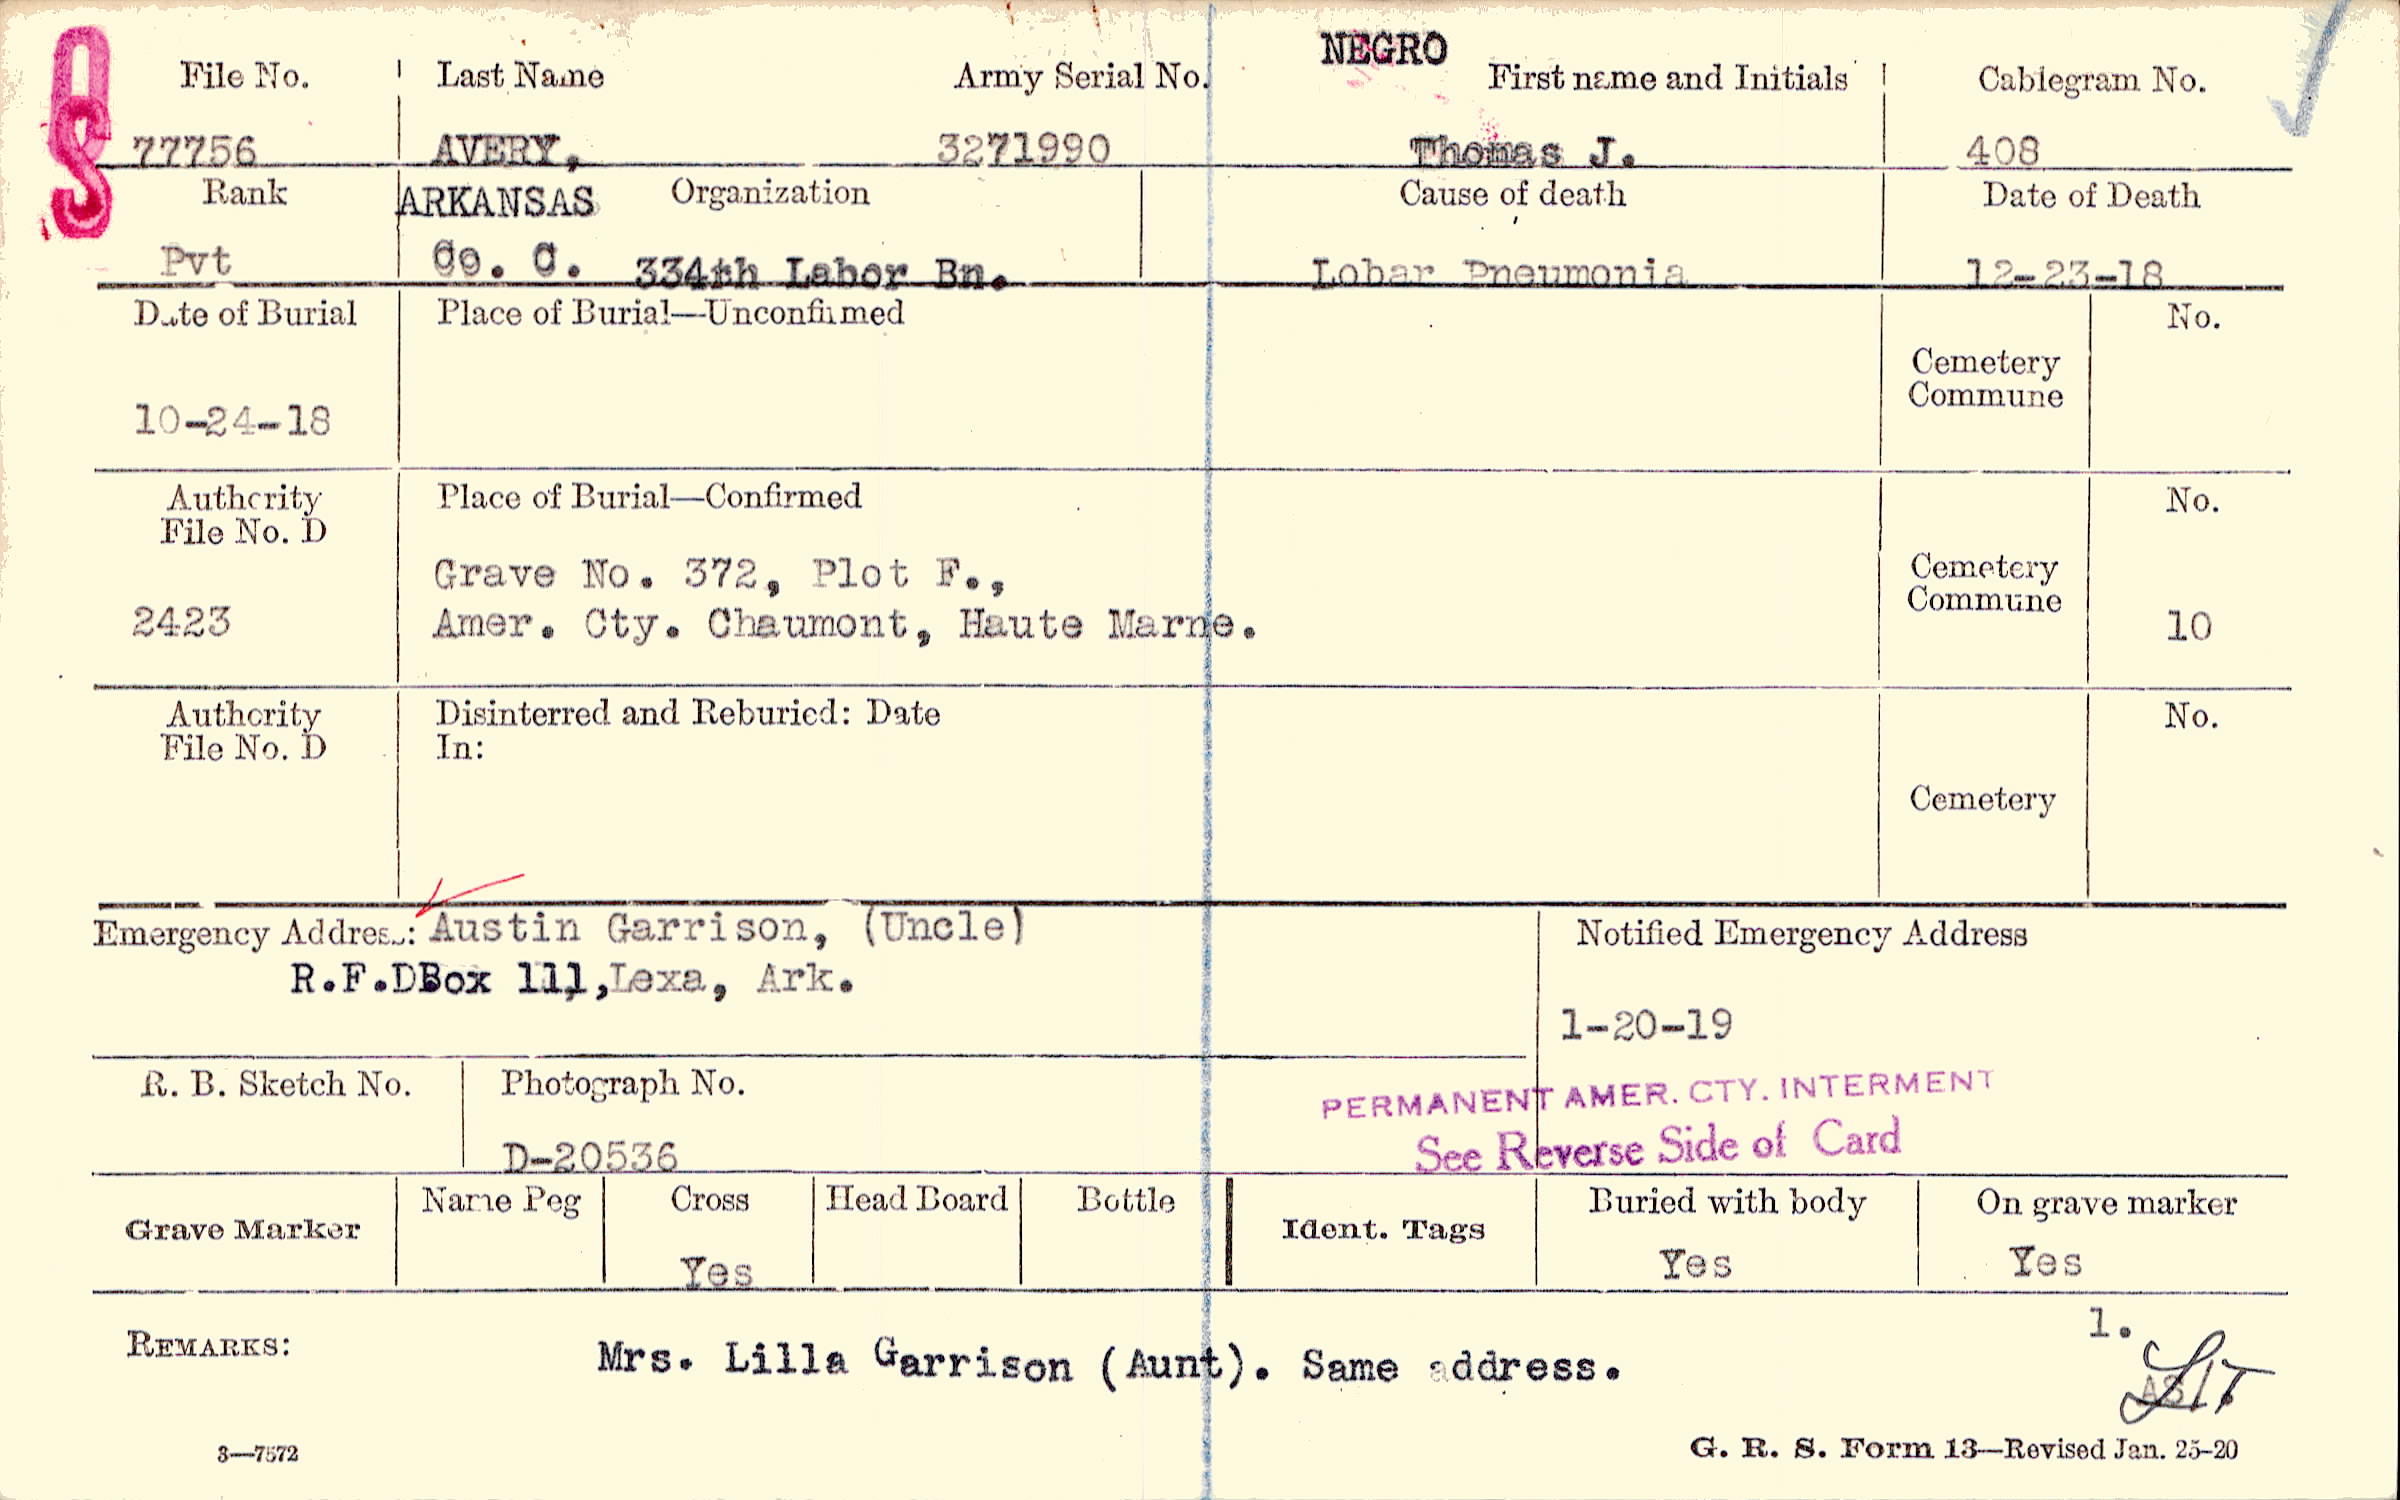 OS
NEGRO
File No. Last Name Army Serial No. First name and Initials Cablegram No.
77756 AVERY, 3271990 Thomas J. 408
Rank ARKANSAS Organization Cause of death Date of Death
Pvt Co. C. 334th Labor Bn. Lobar Pneumonia 12-23-18
Date of Burial Place of Burial—Unconfirmed No.
Cemetery
Commune
10-24-18
Authority Place of Burial—Confirmed No.
File No. D
Grave No. 372, Plot F., Cemetery
2423 Amer. Cty. Chaumont, Haute Marne. Commune 10
Authority Disinterred and Reburied: Date No.
File No. D In:
Cemetery
Emergency Address: Austin Garrison, (Uncle) Notified Emergency Address
R.F.DBox 111,Lexa, Ark.
1-20-19
R. B. Sketch No. Photograph No.
PERMANENT AMER. CTY. INTERMENT
D-20536 See Reverse Side of Card
Grave Marker Name Peg Cross Head Board Bottle Ident. Tags Buried with body On grave marker
Yes Yes Yes
1.
REMARKS: Mrs. Lilla Garrison (Aunt). Same address.
3—7572 G. R. S. Form 13—Revised Jan. 25-20